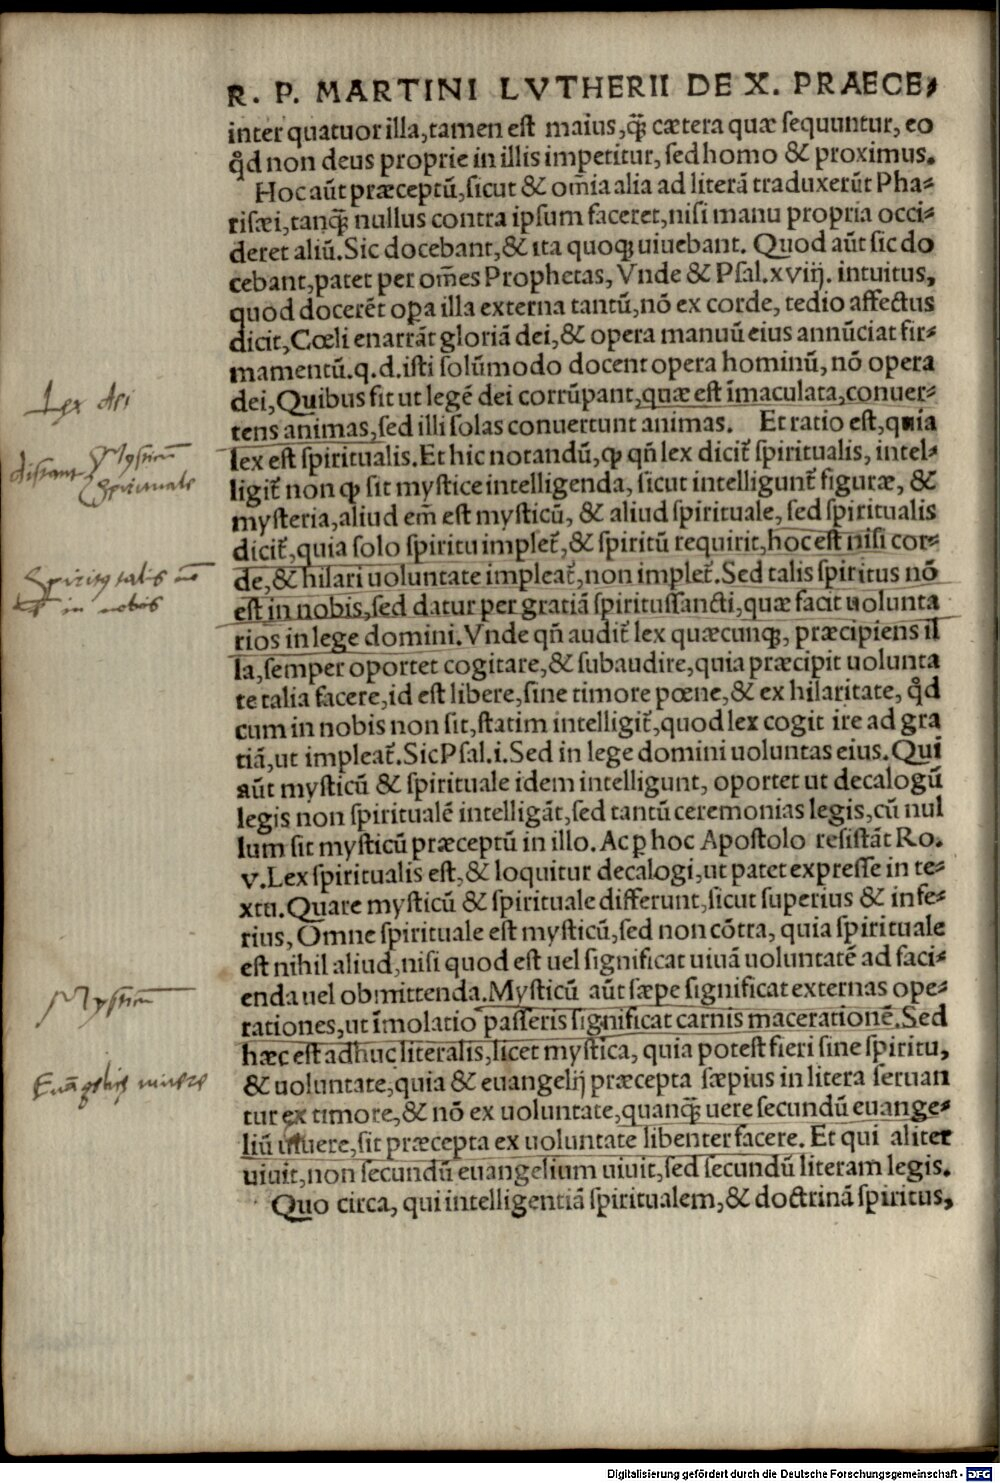 R. P. MARTINI LVTHERII DE X. PRAECE,
inter quatuor illa,tamen est maius,q̃ cætera quæ sequuntur, eo
q̊d non deus proprie in illis impetitur, sed homo & proximus.
Hoc aũt præceptũ,sicut & om̃ia alia ad literã traduxerũt Pha-
risæi,tanq̃ nullus contra ipsum faceret,nisi manu propria occi-
deret aliũ.Sic docebant,& ita quoqꝫ uiuebant. Quod aũt sic do
cebant,patet per om̃es Prophetas, Vnde & Psal.xviij. intuitus,
quod docerẽt oꝑa illa externa tantũ,nõ ex corde, tedio affectus
dicit,Cœli enarrãt gloriã dei,& opera manuũ eius annũciat fir-
mamentũ.q.d.isti solũmodo docent opera hominũ, nõ opera
dei,Quibus fit ut legẽ dei corrũpant,quæ est ĩmaculata,conuer-
tens animas,sed illi solas conuertunt animas. Et ratio est,quia
lex est spiritualis.Et hic notandũ,ꝙ qñ lex dicit̃ spiritualis, intel-
ligit̃ non ꝙ sit mystice intelligenda, sicut intelligunt̃ figuræ, &
mysteria,aliud em̃ est mysticũ, & aliud spirituale, sed spiritualis
dicit̃,quia solo spiritu implet̃,& spiritũ requirit,hoc est nisi cor-
de,& hilari uoluntate impleat̃,non implet̃.Sed talis spiritus nõ
est in nobis,sed datur per gratiã spiritussancti,quæ facit uolunta
rios in lege domini.Vnde qñ audit̃ lex quæcunqꝫ, præcipiens il
la,semper oportet cogitare,& subaudire,quia præcipit uolunta
te talia facere,id est libere,sine timore pœne,& ex hilaritate, q̊d
cum in nobis non sit,statim intelligit̃,quod lex cogit ire ad gra
tiã,ut impleat̃.Sic Psal.i.Sed in lege domini uoluntas eius.Qui
aũt mysticũ & spirituale idem intelligunt, oportet ut decalogũ
legis non spiritualẽ intelligãt,sed tantũ ceremonias legis,cũ nul
lum sit mysticũ præceptũ in illo. Ac ꝑ hoc Apostolo resistãt Ro.
v.Lex spiritualis est,& loquitur decalogi,ut patet expresse in te-
xtu.Quare mysticũ & spirituale differunt,sicut superius & infe-
rius, Omne spirituale est mysticũ,sed non cõtra, quia spirituale
est nihil aliud,nisi quod est uel significat uiuã uoluntatẽ ad faci-
enda uel obmittenda.Mysticũ aũt sæpe significat externas ope-
rationes,ut ĩmolatio passeris significat carnis macerationẽ.Sed
hæc est adhuc literalis,licet mystica, quia potest fieri sine spiritu,
& uoluntate,quia & euangelij præcepta sæpius in litera seruan
tur ex timore,& nõ ex uoluntate,quanq̃ uere secundũ euange-
liũ uiuere,sit præcepta ex uoluntate libenter facere. Et qui aliter
uiuit,non secundũ euangelium uiuit,sed secundũ literam legis.
Quo circa, qui intelligentiã spiritualem,& doctrinã spiritus,
Lex dei
distant Mysticũ
Spirituale
in nobis
Mysticũ
Euãgelice uiuere
Digitalisierung gefördert durch die Deutsche Forschungsgemeinschaft - DFG